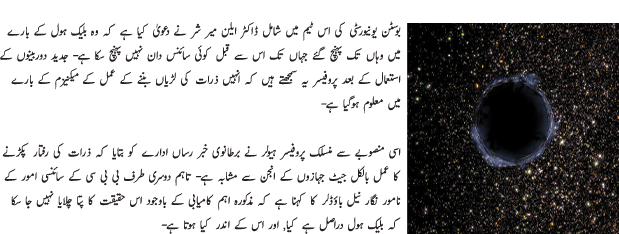 بوسٹن یونیورسٹی کی اس ٹیم میں شامل ڈاکٹر ایلن میر شر نے دعویٰ کیا ہے کہ وہ بلیک ہول کے بارے
میں وہاں تک پہنچ گئے جہاں تک اس سے قبل کوئی سائنس دان نہیں پہنچ سکا ہے۔ جدید دوربینوں کے
استعمال کے بعد پروفیسر یہ سمجھتے ہیں کہ انہیں ذرات کی لڑیاں بننے کے عمل کے میکنیزم کے بارے
میں معلوم ہوگیا ہے۔
اسی منصوبے سے منسلک پروفیسر ہیولر نے برطانوی خبر رساں ادارے کو بتایا کہ ذرات کی رفتار پکڑنے
کا عمل بالکل جیٹ جہازوں کے انجن سے مشابہ ہے۔ تاہم دوسری طرف بی بی سی کے سائنسی امور کے
نامور نگار نیل باؤڈلر کا کہنا ہے کہ مذکورہ اہم کامیابی کے باوجود اس حقیقت کا پتا چلایا نہیں جا سکا
کہ بلیک ہول دراصل ہے کیا, اور اس کے اندر کیا ہوتا ہے۔